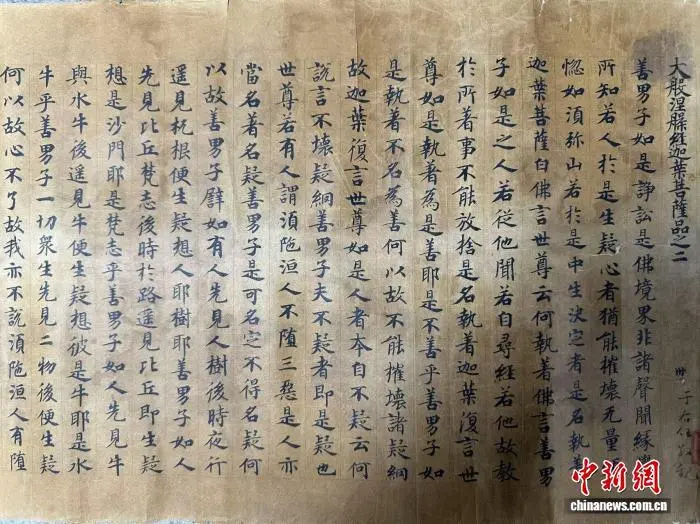 大般涅槃經迦葉菩薩品之二
善男子如是諍訟是佛境界非諸聲聞緣
所知若人於是生疑心者猶能摧壞无量
惱如須弥山若於是中生決定者是名執著
迦葉菩薩白佛言世尊云何執著佛言善男
子如是之人若從他聞若自尋經若他故教
於所著事不能放捨是名執著迦葉復言世
尊如是執著為是善耶是不善乎善男子如
是執著不名為善何以故不能摧壞諸疑網
故迦葉復言世尊如是人者本自不疑云何
說言不壞疑網善男子夫不疑者即是疑也
世尊若有人謂湏陁洹人不墮三惡是人亦
當名著名疑善男子是可名定不得名疑何
以故善男子譬如有人先見人樹後時夜行
遥見杌根便生疑想人耶樹耶善男子如人
先見比丘梵志後時於路遥見比丘即生疑
想是沙門耶是梵志乎善男子如人先見牛
與水牛後遥見牛便生疑想彼是牛耶是水
牛乎善男子一切衆生先見二物後便生疑
何以故心不了故我亦不說湏陁洹人有墮
中新網
chinanews.com